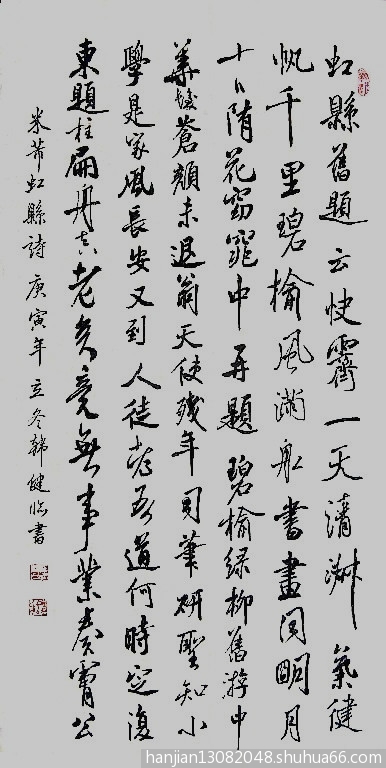 虹縣舊題云快霽一天清淑氣健
帆千里碧榆風滿舡書畫同明月
十日隋花窈窕中再題碧榆綠柳舊游中
華髮蒼顏未退翁天使殘年司筆研聖知小
學是家風長安又到人徒老吾道何時定復
東題柱扁舟真老矣竟無事業奏膚公
米芾虹縣詩庚寅年立冬韓健臨書
hanjian13082048.shuhua66.com